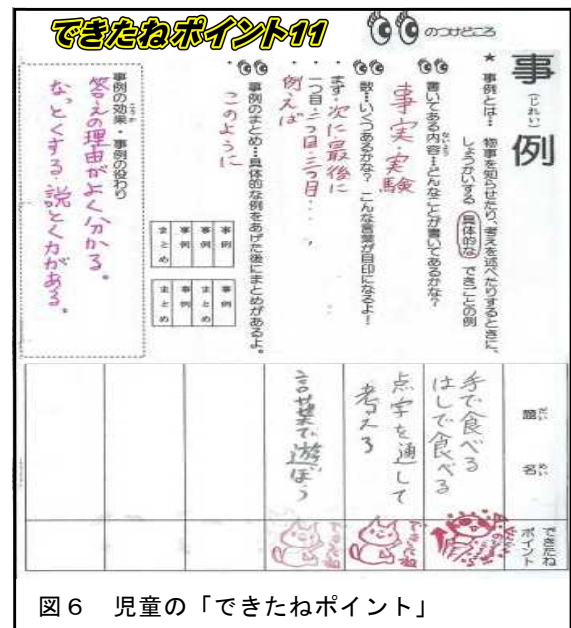 できたねポイント11
のつけどころ
事例
(じれい)
★ 事例とは… 物事を知らせたり、考えを述べたりするときに、
しょうかいする 具体的な できごとの例
書いてある内容…どんなことが書いてあるかな?
ないよう
事実・実験
数…いくつあるかな? こんな言葉が目印になるよ!
まず・次に最後に
一つ目・二つ目・三つ目・・・、
例えば
事例のまとめ…具体的な例をあげた後にまとめがあるよ。
このように
事例
事例
事例
まとめ
事例
まとめ
事例
まとめ
事例の効果・事例の役わり
こうか
答えの理由がよく分かる。
なっとくする・説とく力がある。
題名
だいめい
できたねポイント
手で食べる
はしで食べる
点字を通して
考える
できたね
言葉で遊ぼう
できたね
図6 児童の「できたねポイント」